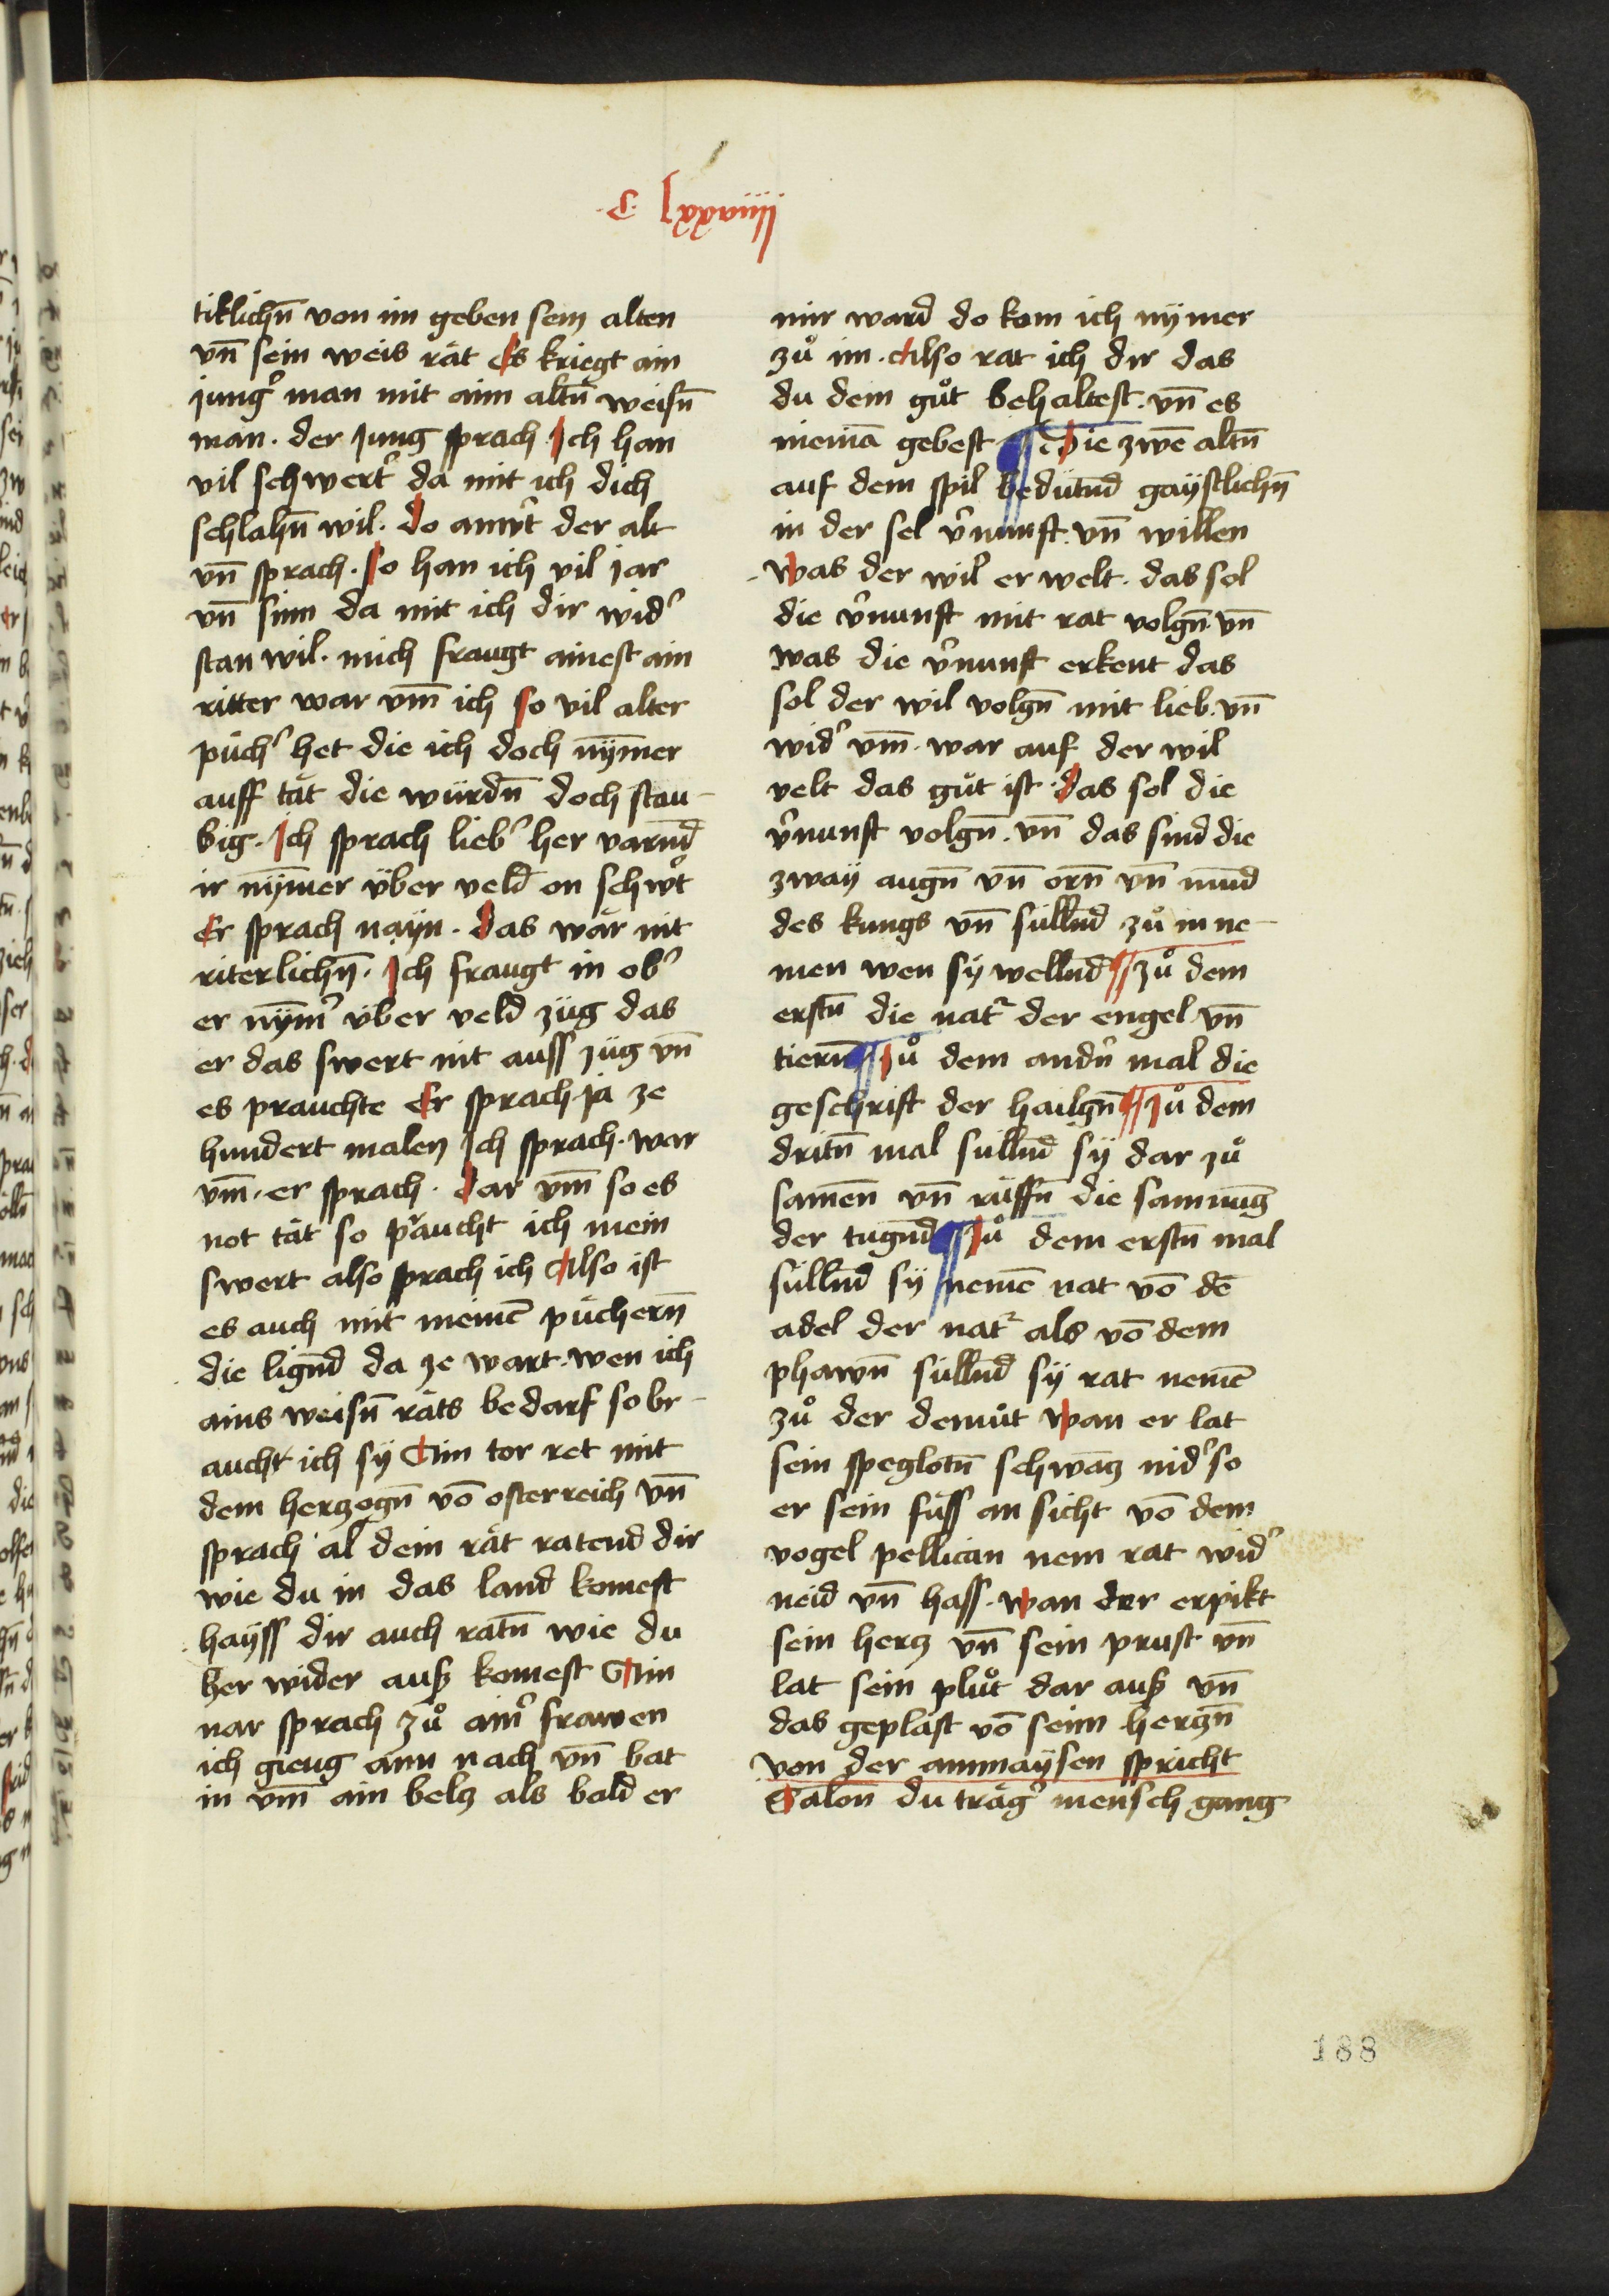 ·C· lxxxviiij
tiklichn̄ von im geben sein alten
vn̄ sein weis rät Es kriegt ain
jungr̉ man mit aim altn̄ weisn̄
man · der jung sprach Ich han
vil schwertr̉ da mit ich dich
schlahn̄ wil · do antw̉t der alt
vn̄ sprach · so han ich vil jar
vn̄ sinn da mit ich dir wid̉
stan wil · mich fraugt ainest ain
ritter war vm̄ ich so vil alter
püch̉ het die ich doch nÿmer
auff tät die würdn̄ doch stau-
big · Ich sprach lieb̉ her varnd̄
ir nÿmer über veld on schw̉t
Er sprach nayn · das wär nit
riterlichn̄ · Ich fraugt in ob̉
er nÿm̉ über veld züg das
er das swert nit auss züg vn̄
es prauchte Er sprach ja ze
hundert malen Ich sprach · war
vm̄ · er sprach · dar vm̄ so es
not tät so praucht ich mein
swert also sprach ich Also ist
es auch mit meinē püchern̄
die lignd̄ da ze wart · wen ich
ains weisn̄ räts bedarf so br-
aucht ich sÿ Ain tor ret mit
dem herzogn̄ vō osterreich vn̄
sprach al dein rät ratend dir
wie du in das land komest
haÿss dir auch ratn̄ wie du
her wider auß komest Ain
nar sprach zů aim̉ frawen
ich gieng aim nach vn̄ bat
in vm̄ ain belz als bald er
mir ward do kam ich nÿmer
zů im · Also rat ich dir das
du dem gůt behaltest · vn̄ es
niemā gebest ¶ Die zwē altn̄
auf dem spil bedütnd̄ gaÿstlichn̄
in der sel v̉nunft · vn̄ willen
Was der wil er welt · das sol
die v̉nunft mit rat volgn̄ vn̄
was die v̉nunft erkent das
sol der wil volgn̄ mit lieb · vn̄
wid̉ vm̄ · war auf der wil
velt das gůt ist · das sol die
v̉nunft volgn̄ · vn̄ das sind die
zwaÿ augn̄ vn̄ orn̄ vn̄ mund
des kungs vn̄ sullnd̄ zů in ne-
men wen sÿ wellnd̄ ¶ zů dem
erstn̄ die nat̉ der engel vn̄
tiern̄ ¶ Zů dem andn̉ mal die
geschrift der hailgn̄ ¶ Zů dem
dritn̄ mal sullnd̄ sÿ dar zů
samen̄ vn̄ rüffn̄ die samnung
der tugnd̄ ¶ Zů dem erstn̄ mal
süllnd̄ sÿ nemē rat vō dē
adel der nat̉ als vō dem
phawn̄ süllnd̄ sÿ rat nemē
zů der demůt wan er lat
sein speglotn̄ schwāz nid̉ so
er sein füss an sicht vō dem
vogel pellican nem rat wid̉
neid vn̄ hass · wan der erpikt
sein herz vn̄ sein prust vn̄
lat sein plůt dar auß vn̄
das geplast vō seim herzn̄
von der ammaÿsen spricht
Salon̄ du träg̉ mensch gang
188